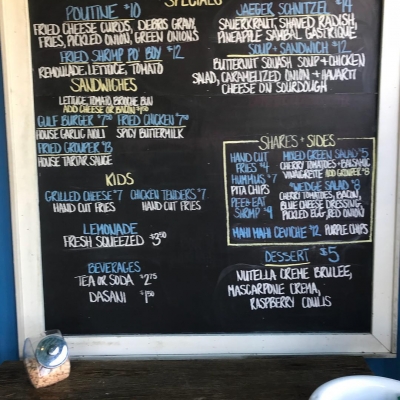 SPECIALS
POUTINE $10
FRIED CHEESE CURDS, DEBRIS GRAVY,
FRIES, PICKLED ONION, GREEN ONIONS
FRIED SHRIMP PO' BOY $12
REMOULADE, LETTUCE, TOMATO
SANDWICHES
LETTUCE, TOMATO, BRIOCHE BUN
ADD CHEESE OR BACON
GULF BURGER $7.50 FRIED CHICKEN $7.50
HOUSE GARLIC AIOLI SPICY BUTTERMILK
FRIED GROUPER $13
HOUSE TARTAR SAUCE
KIDS
GRILLED CHEESE $7 CHICKEN TENDERS $7
HAND CUT FRIES HAND CUT FRIES
LEMONADE
FRESH SQUEEZED $3.50
BEVERAGES
TEA OR SODA $2.75
DASANI $1.50
JAEGER SCHNITZEL $14
SAUERKRAUT, SHAVED RADISH,
PINEAPPLE SAMBAL GASTRIQUE
SOUP + SANDWICH $12
BUTTERNUT SQUASH SOUP + CHICKEN
SALAD, CARAMELIZED ONION + HAVARTI
CHEESE ON SOURDOUGH
SHARES + SIDES
HAND CUT
FRIES $4
HUMMUS $7
PITA CHIPS
PEEL + EAT
SHRIMP $9
MIXED GREEN SALAD $5
CHERRY TOMATOES + BALSAMIC
VINAIGRETTE ADD GROUPER $8
WEDGE SALAD $8
CHERRY TOMATOES, BACON,
BLUE CHEESE DRESSING,
PICKLED EGG, RED ONION
MAHI MAHI CEVICHE $12 PURPLE CHIPS
DESSERT $5
NUTELLA CREME BRULEE,
MASCARPONE CREMA,
RASPBERRY COULIS